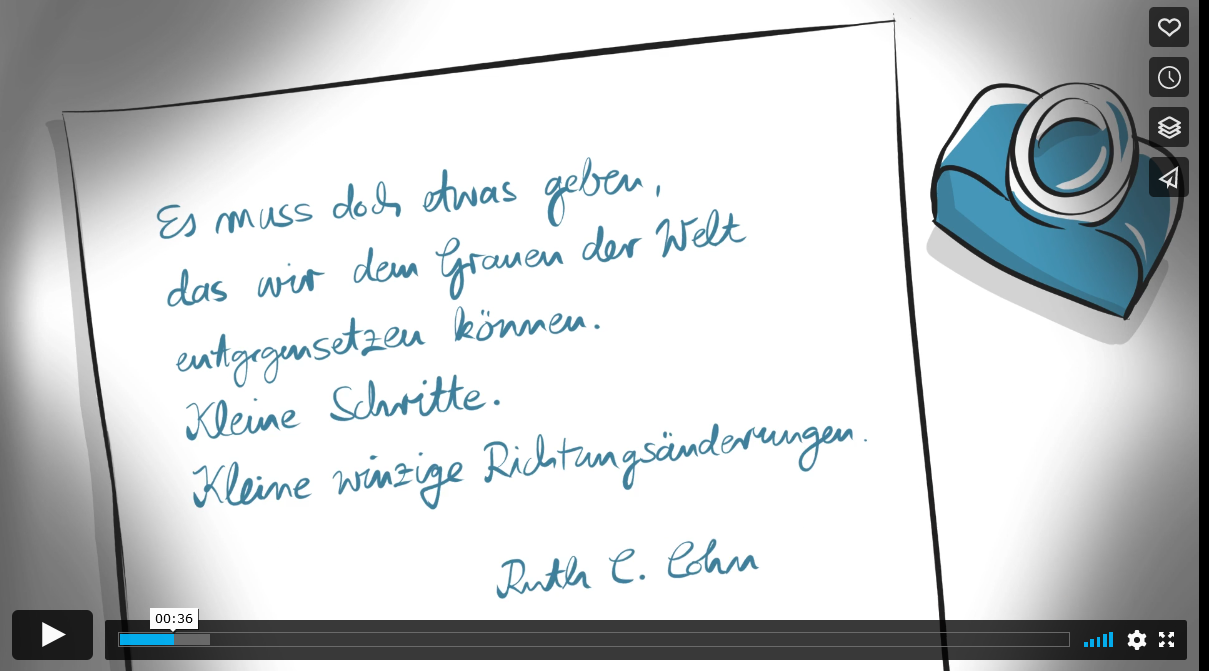 Es muss doch etwas geben,
das wir dem Grauen der Welt
entgegensetzen können.
Kleine Schritte.
Kleine winzige Richtungsänderungen.
Ruth C. Cohn
00:36